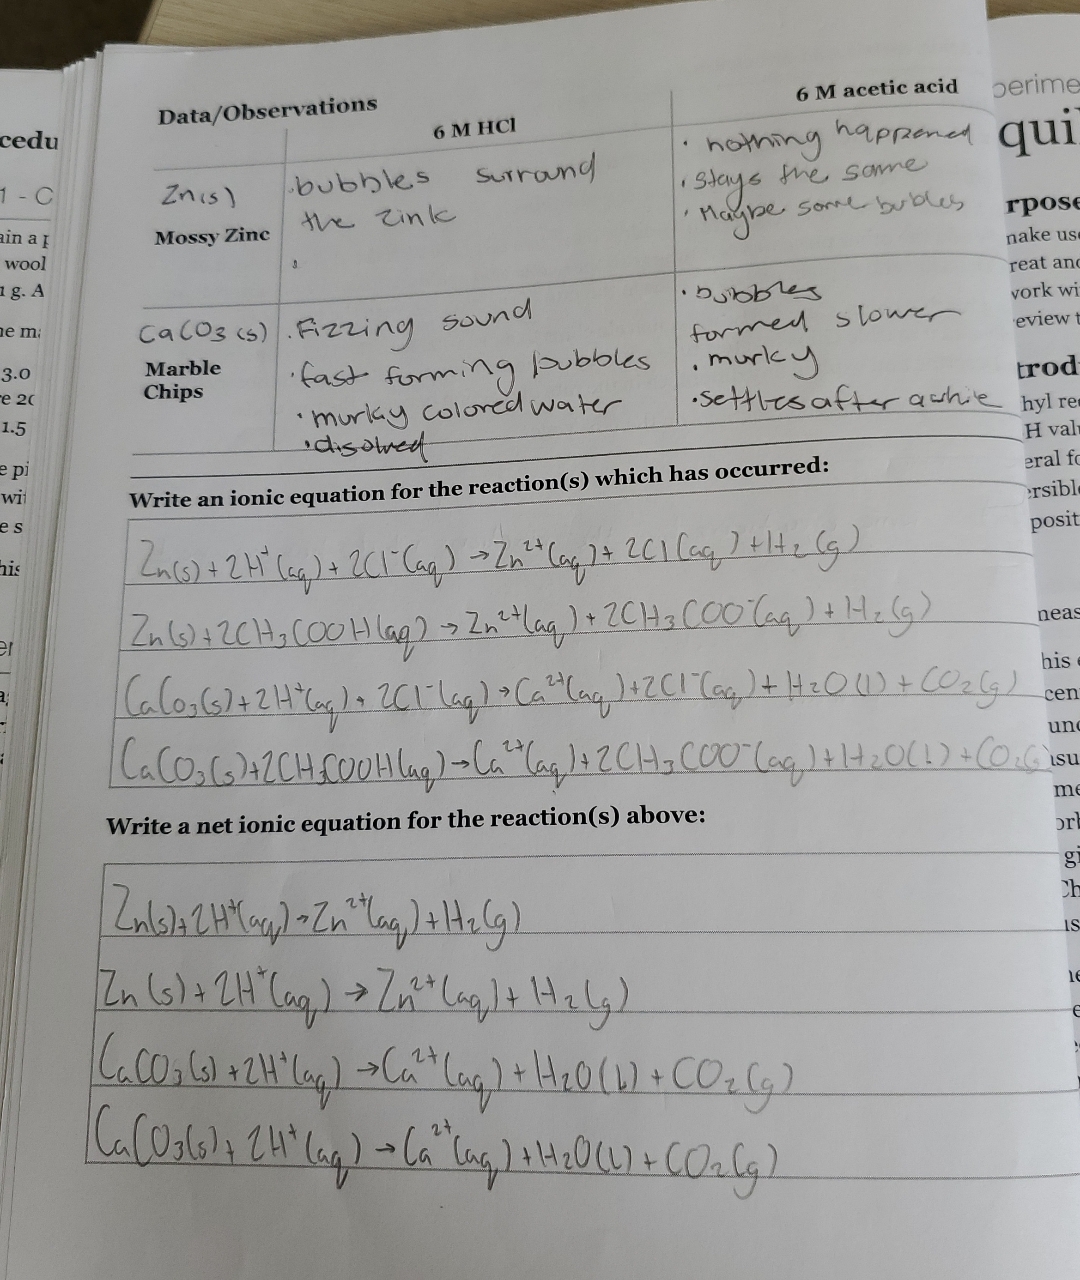 Data/Observations
6 M HCl
6 M acetic acid
Zn(s)
Mossy Zinc
.bubbles surround
the zink
· nothing happened
· stays the same
· Maybe some bubbles
CaCO3 (s)
Marble
Chips
.Fizzing sound
·fast forming bubbles
· murkay colored water
·disolved
·bubbles
formed slower
.murky
·settles after awhile
Write an ionic equation for the reaction(s) which has occurred:
Zn(s) + 2H⁺(aq) + 2Cl⁻(aq) → Zn²⁺(aq) + 2Cl(aq) + H₂(g)
Zn(s) + 2CH₃COOH(aq) → Zn²⁺(aq) + 2CH₃COO⁻(aq) + H₂(g)
CaCO₃(s) + 2H⁺(aq) + 2Cl⁻(aq) → Ca²⁺(aq) + 2Cl⁻(aq) + H₂O(l) + CO₂(g)
CaCO₃(s) + 2CH₃COOH(aq) → Ca²⁺(aq) + 2CH₃COO⁻(aq) + H₂O(l) + CO₂(g)
Write a net ionic equation for the reaction(s) above:
Zn(s) + 2H⁺(aq) → Zn²⁺(aq) + H₂(g)
Zn(s) + 2H⁺(aq) → Zn²⁺(aq) + H₂(g)
CaCO₃(s) + 2H⁺(aq) → Ca²⁺(aq) + H₂O(l) + CO₂(g)
CaCO₃(s) + 2H⁺(aq) → Ca²⁺(aq) + H₂O(l) + CO₂(g)